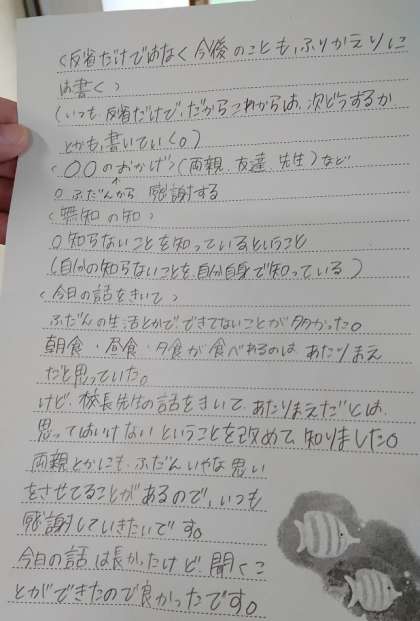 〈反省だけではなく今後のことも、ふりかえりに
は書く〉
(いつも、反省だけで、だからこれからは、次どうするか
とかも、書いていく。)
〈〇〇のおかげ〉(両親、友達、先生)など
○ふだんから 感謝する
〈無知の知〉
○知らないことを知っているということ
(自分の知らないことを、自分自身で知っている)
〈今日の話をきいて〉
ふだんの生活とかで、できてないことが多かった。
朝食・昼食・夕食が食べれるのは、あたりまえ
だと思っていた。
けど、校長先生の話をきいて、あたりまえだとは、
思ってはいけないということを改めて、知りました。
両親とかにも、ふだんいやな思い
をさせてることがあるので、いつも
感謝していきたいです。
今日の話は長かったけど、聞くこ
とができたので良かったです。